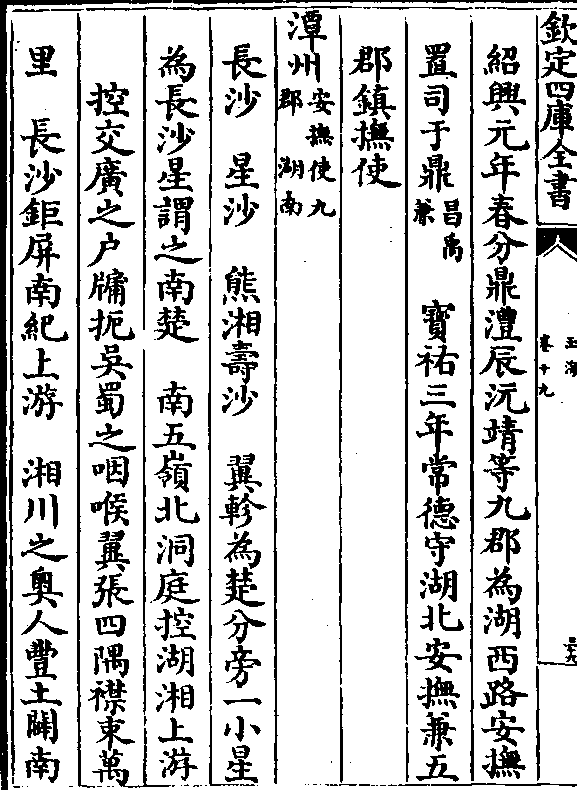 欽定四庫全書
玉海
卷十九
紹興元年春分鼎澧辰沅靖等九郡為湖西路安撫
置司于鼎昌禹兼　寶祐三年常德守湖北安撫兼五
郡鎮撫使
潭州安撫使九郡湖南
長沙　星沙　熊湘壽沙　翼軫為楚分旁一小星
為長沙星謂之南楚　南五嶺北洞庭控湖湘上游
控交廣之户牖扼吳蜀之咽喉翼張四隅襟束萬
里　長沙鉅屏南紀上游　湘川之奥人豐土闢南